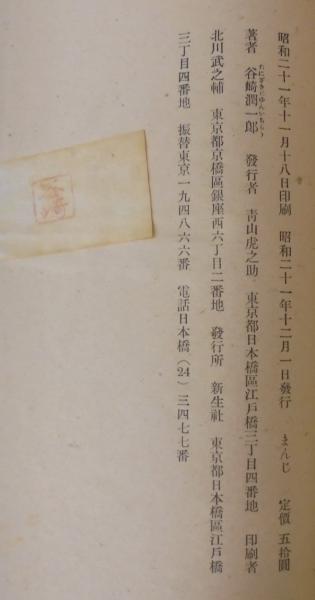 昭和二十一年十一月十八日印刷 昭和二十一年十二月一日發行 まんじ 定價 五拾圓
著者 谷崎潤一郎 發行者 青山虎之助 東京都日本橋區江戸橋三丁目四番地 印刷者
たにざきじゆんいちらう
北川武之輔 東京都京橋區銀座西六丁目二番地 發行所 新生社 東京都日本橋區江戸橋
三丁目四番地 振替東京一九四八六六番 電話日本橋(24)三四七七番